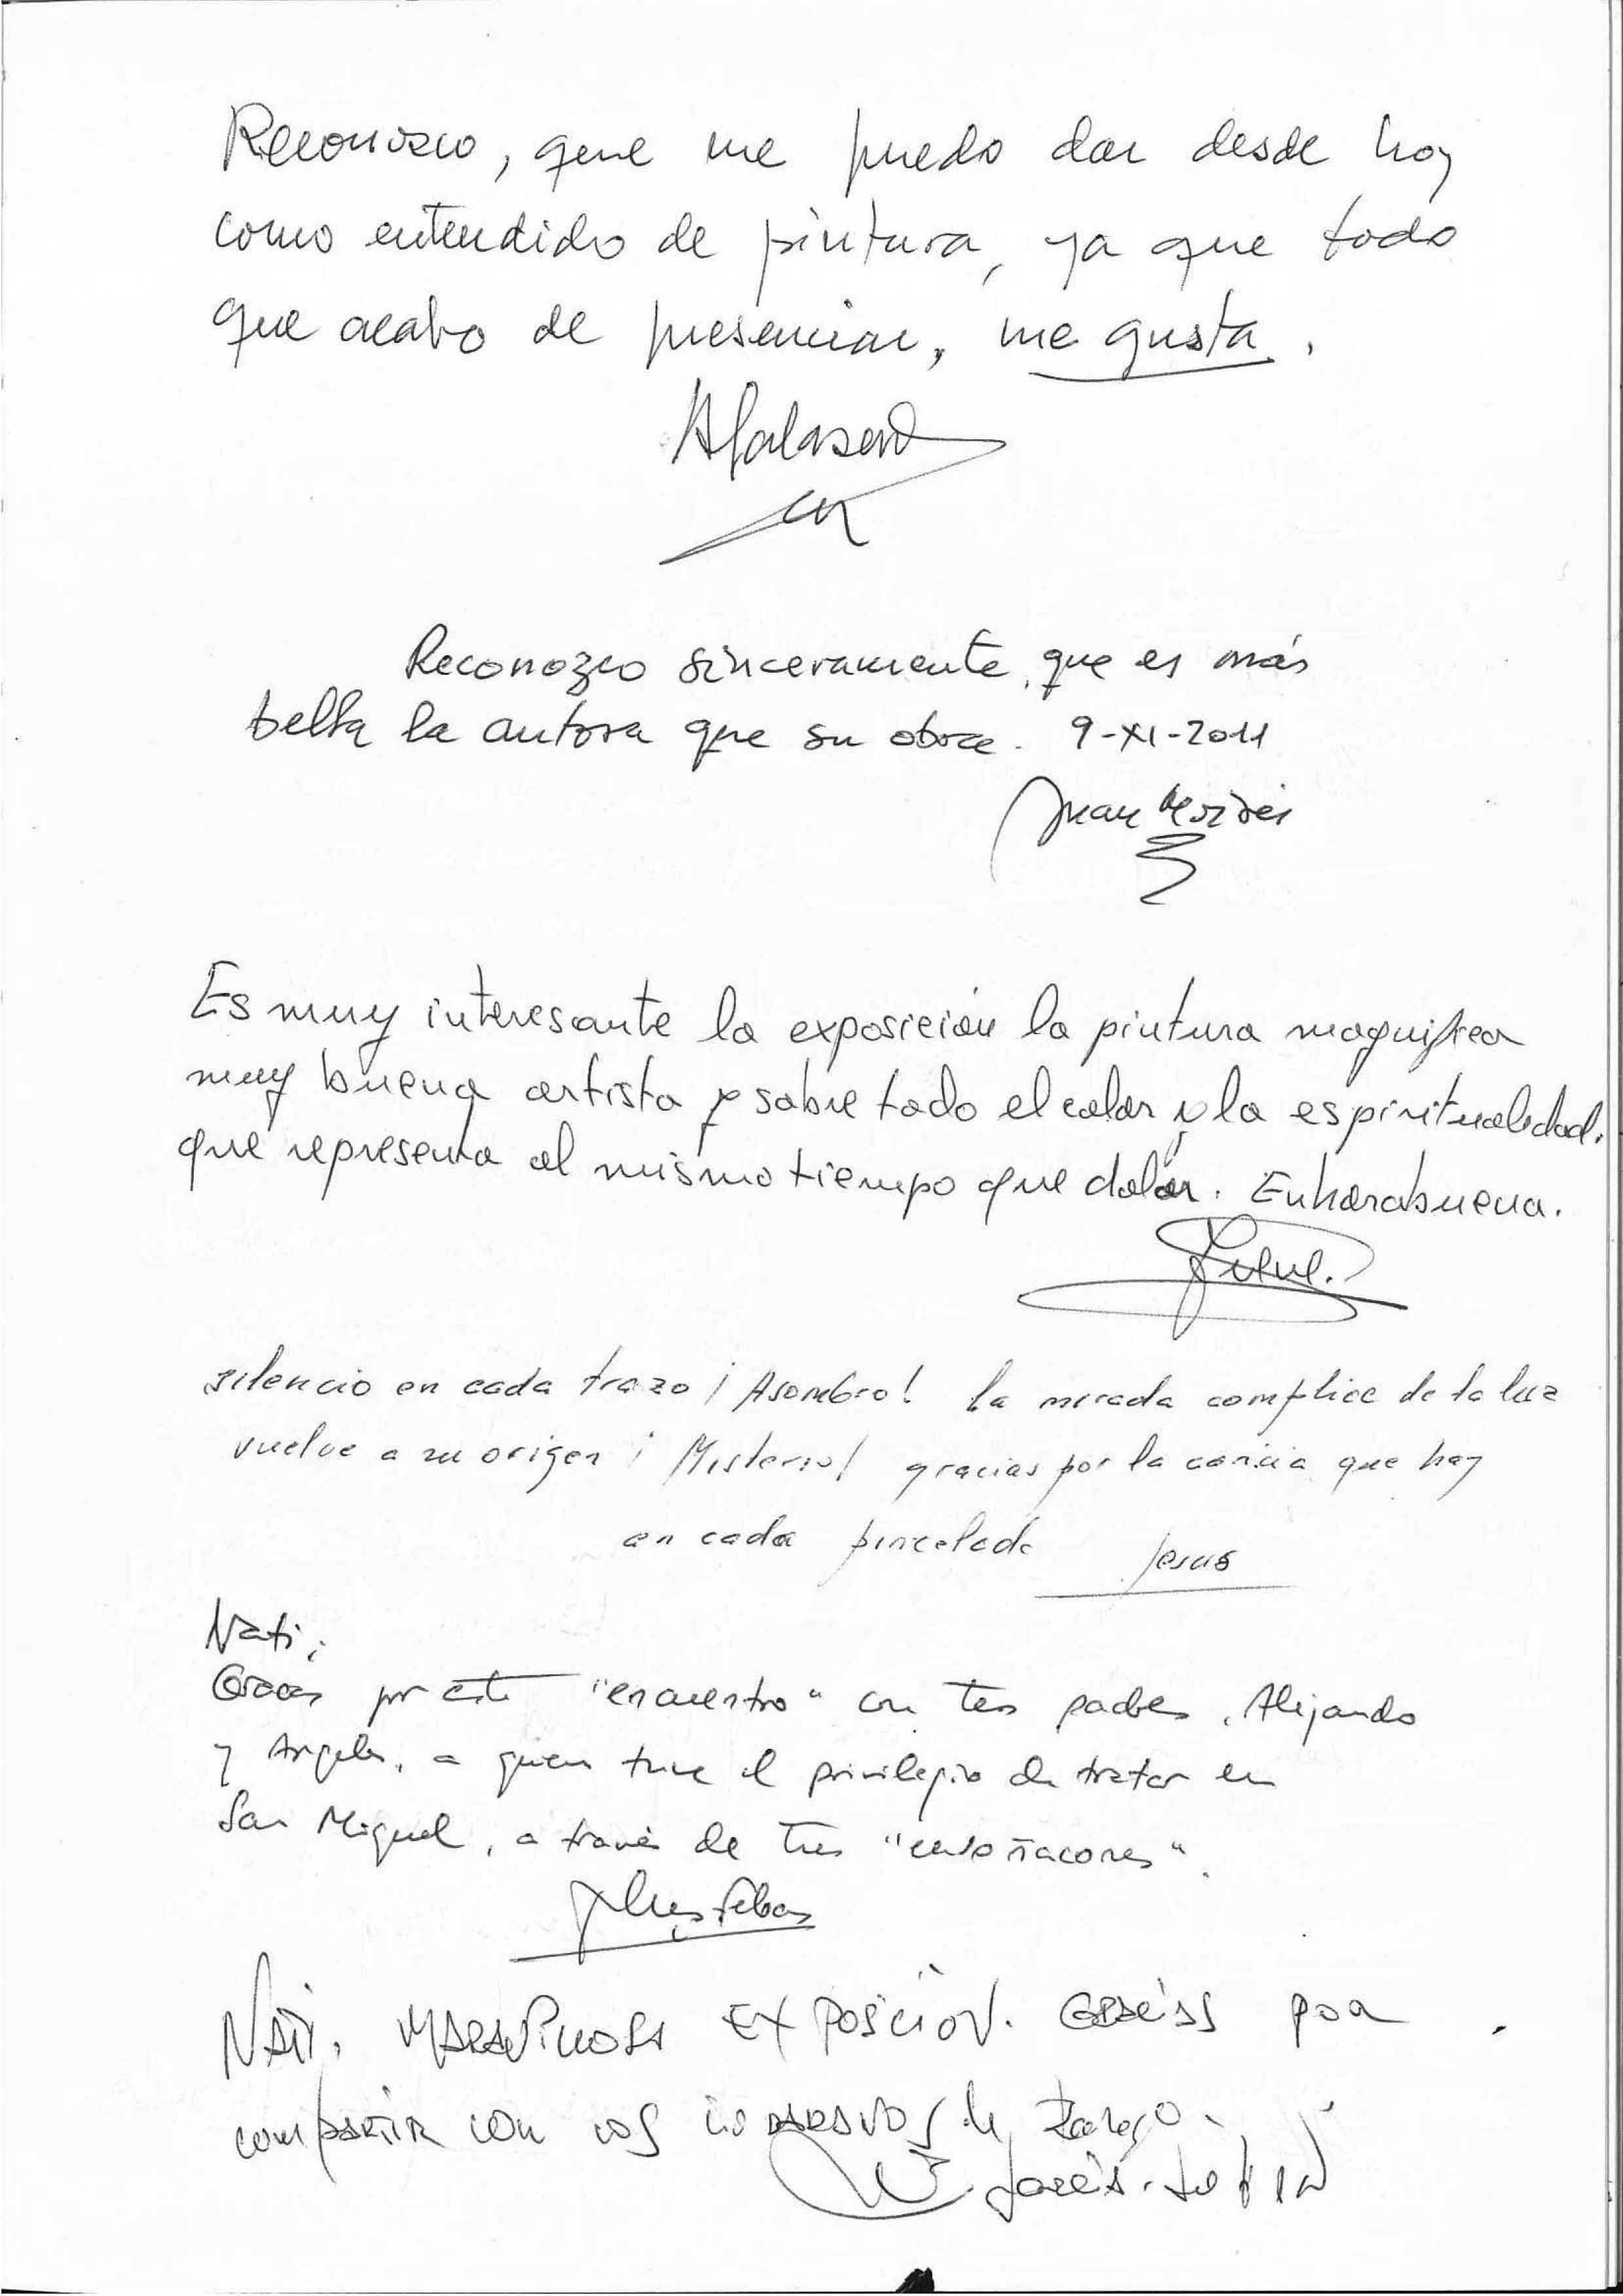 Reconozco, que me puedo dar desde hoy
como entendido de pintura, ya que todo
que acabo de presenciar, me gusta.
Reconozco sinceramente, que es más
bella la autora que su obra. 9-XI-2011
Juan
Es muy interesante la exposición la pintura magnifica
muy buena artista y sobre todo el color y la espiritualidad.
que representa al mismo tiempo que dolor. Enhorabuena.
silencio en cada trazo ¡Asombro! la mirada complice de la luz
vuelve a su origen ¡Misterio! gracias por la caricia que hay
en cada pincelada Jesus
Nati;
Gracias por este "encuentro" con tus padres, Alejandro
y Angeles, a quien tuve el privilegio de tratar en
San Miguel, a través de tus "ensoñaciones".
NATI. MARAVILLOSA EXPOSICIÓN. GRACIAS POR
COMPARTIR CON LOS de